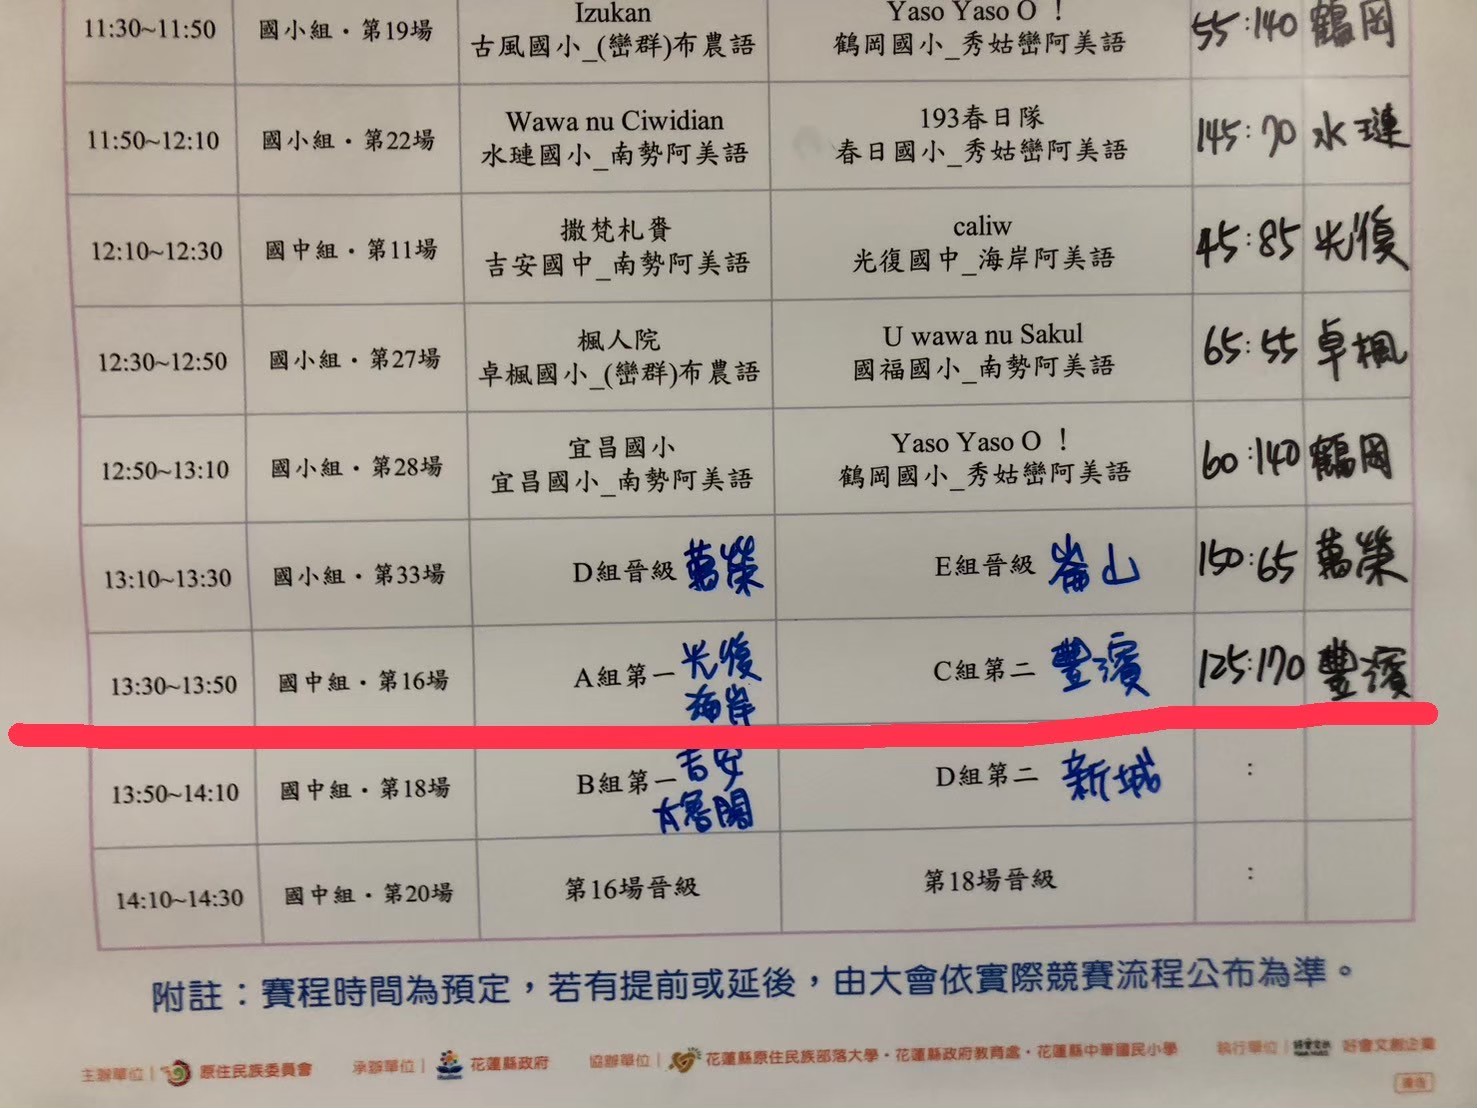 11:30~11:50 國小組・第19場 Izukan Yaso Yaso O ！ 55:140 鶴岡
古風國小_(巒群)布農語 鶴岡國小_秀姑巒阿美語
Wawa nu Ciwidian 193春日隊
11:50~12:10 國小組・第22場 水璉國小_南勢阿美語 春日國小_秀姑巒阿美語 145:70 水璉
撒梵札賡 caliw
12:10~12:30 國中組・第11場 吉安國中_南勢阿美語 光復國中_海岸阿美語 45:85 光復
楓人院 U wawa nu Sakul
12:30~12:50 國小組・第27場 卓楓國小_(巒群)布農語 國福國小_南勢阿美語 65:55 卓楓
宜昌國小 Yaso Yaso O ！
12:50~13:10 國小組・第28場 宜昌國小_南勢阿美語 鶴岡國小_秀姑巒阿美語 60:140 鶴岡
13:10~13:30 國小組・第33場 D組晉級 萬榮 E組晉級 崙山 150:65 萬榮
13:30~13:50 國中組・第16場 A組第一 光復 C組第二 豐濱 125:170 豐濱
海岸
13:50~14:10 國中組・第18場 B組第一 吉安 D組第二 新城 :
太魯閣
14:10~14:30 國中組・第20場 第16場晉級 第18場晉級 :
附註：賽程時間為預定，若有提前或延後，由大會依實際競賽流程公布為準。
主辦單位 | 原住民族委員會 承辦單位 | 花蓮縣政府 協辦單位 | 花蓮縣原住民族部落大學・花蓮縣政府教育處・花蓮縣中華國民小學 執行單位 | 好會文創企業
廣告